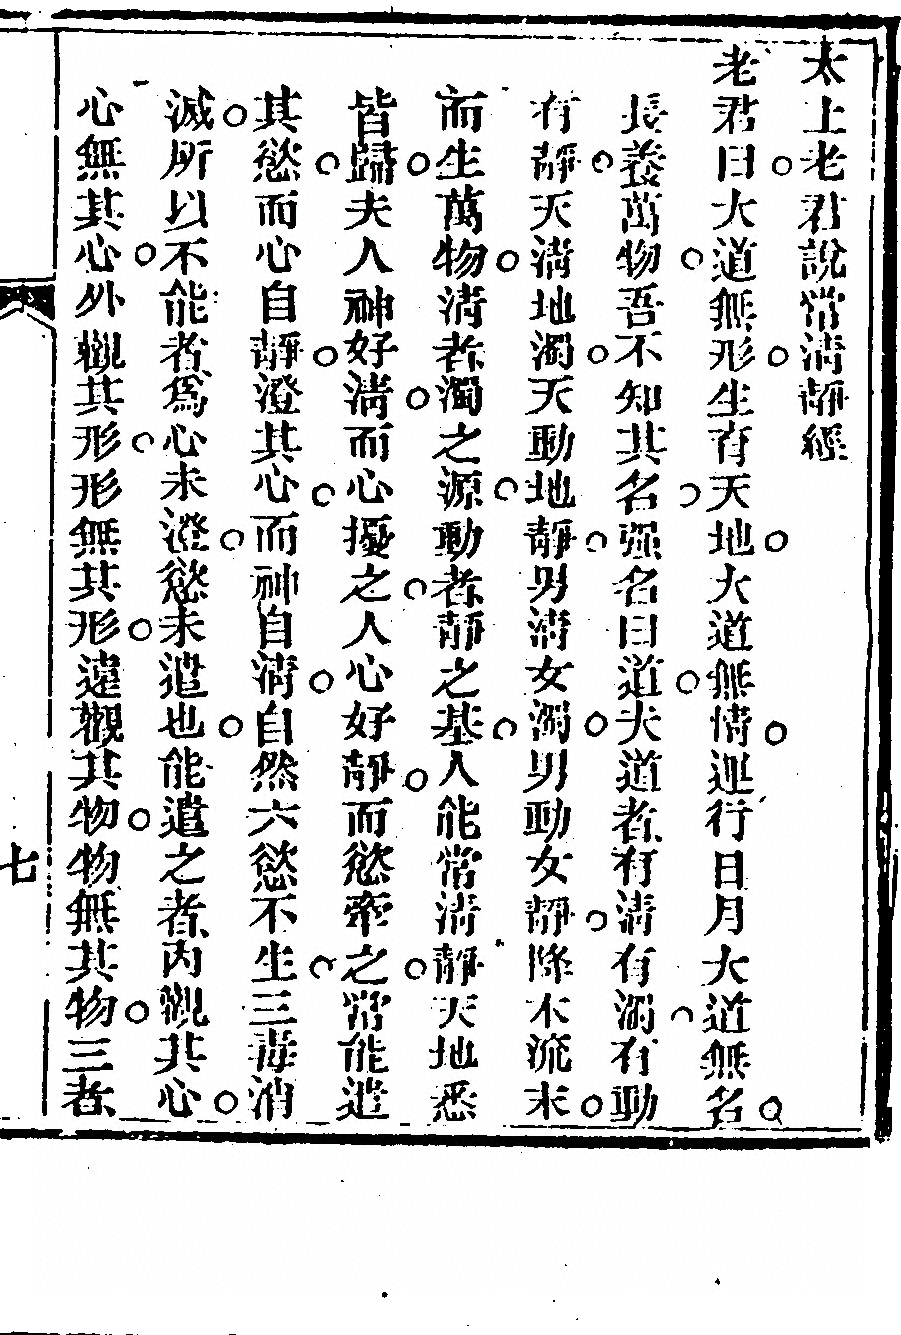 太上老君說常清靜經
老君曰大道無形生育天地大道無情運行日月大道無名
長養萬物吾不知其名强名曰道夫道者有清有濁有動
有靜天清地濁天動地靜男清女濁男動女靜降本流末
而生萬物清者濁之源動者靜之基人能常清靜天地悉
皆歸夫人神好清而心擾之人心好靜而慾牽之常能遣
其慾而心自靜澄其心而神自清自然六慾不生三毒消
滅所以不能者爲心未澄慾未遣也能遣之者內觀其心
心無其心外觀其形形無其形遠觀其物物無其物三者
七